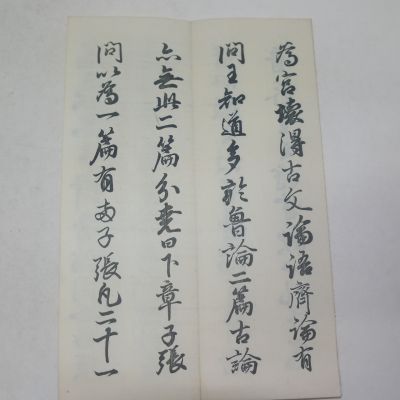 為宮壞得古文論語齊論有
問王知道多於魯論二篇古論
亦無此二篇分堯曰下章子張
問以為一篇有両子張凡二十一